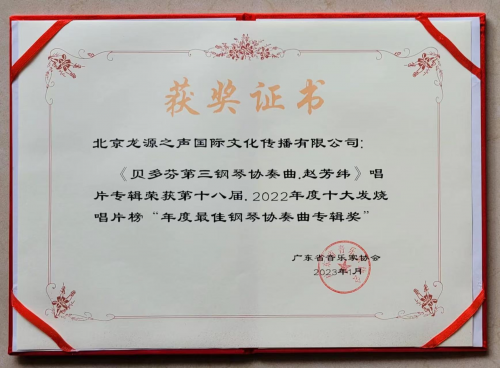 获奖证书
北京龙源之声国际文化传播有限公司:
《贝多芬第三钢琴协奏曲.赵芳纬》唱
片专辑荣获第十八届.2022年度十大发烧
唱片榜“年度最佳钢琴协奏曲专辑奖”
广东省音乐家协会
2023年1月